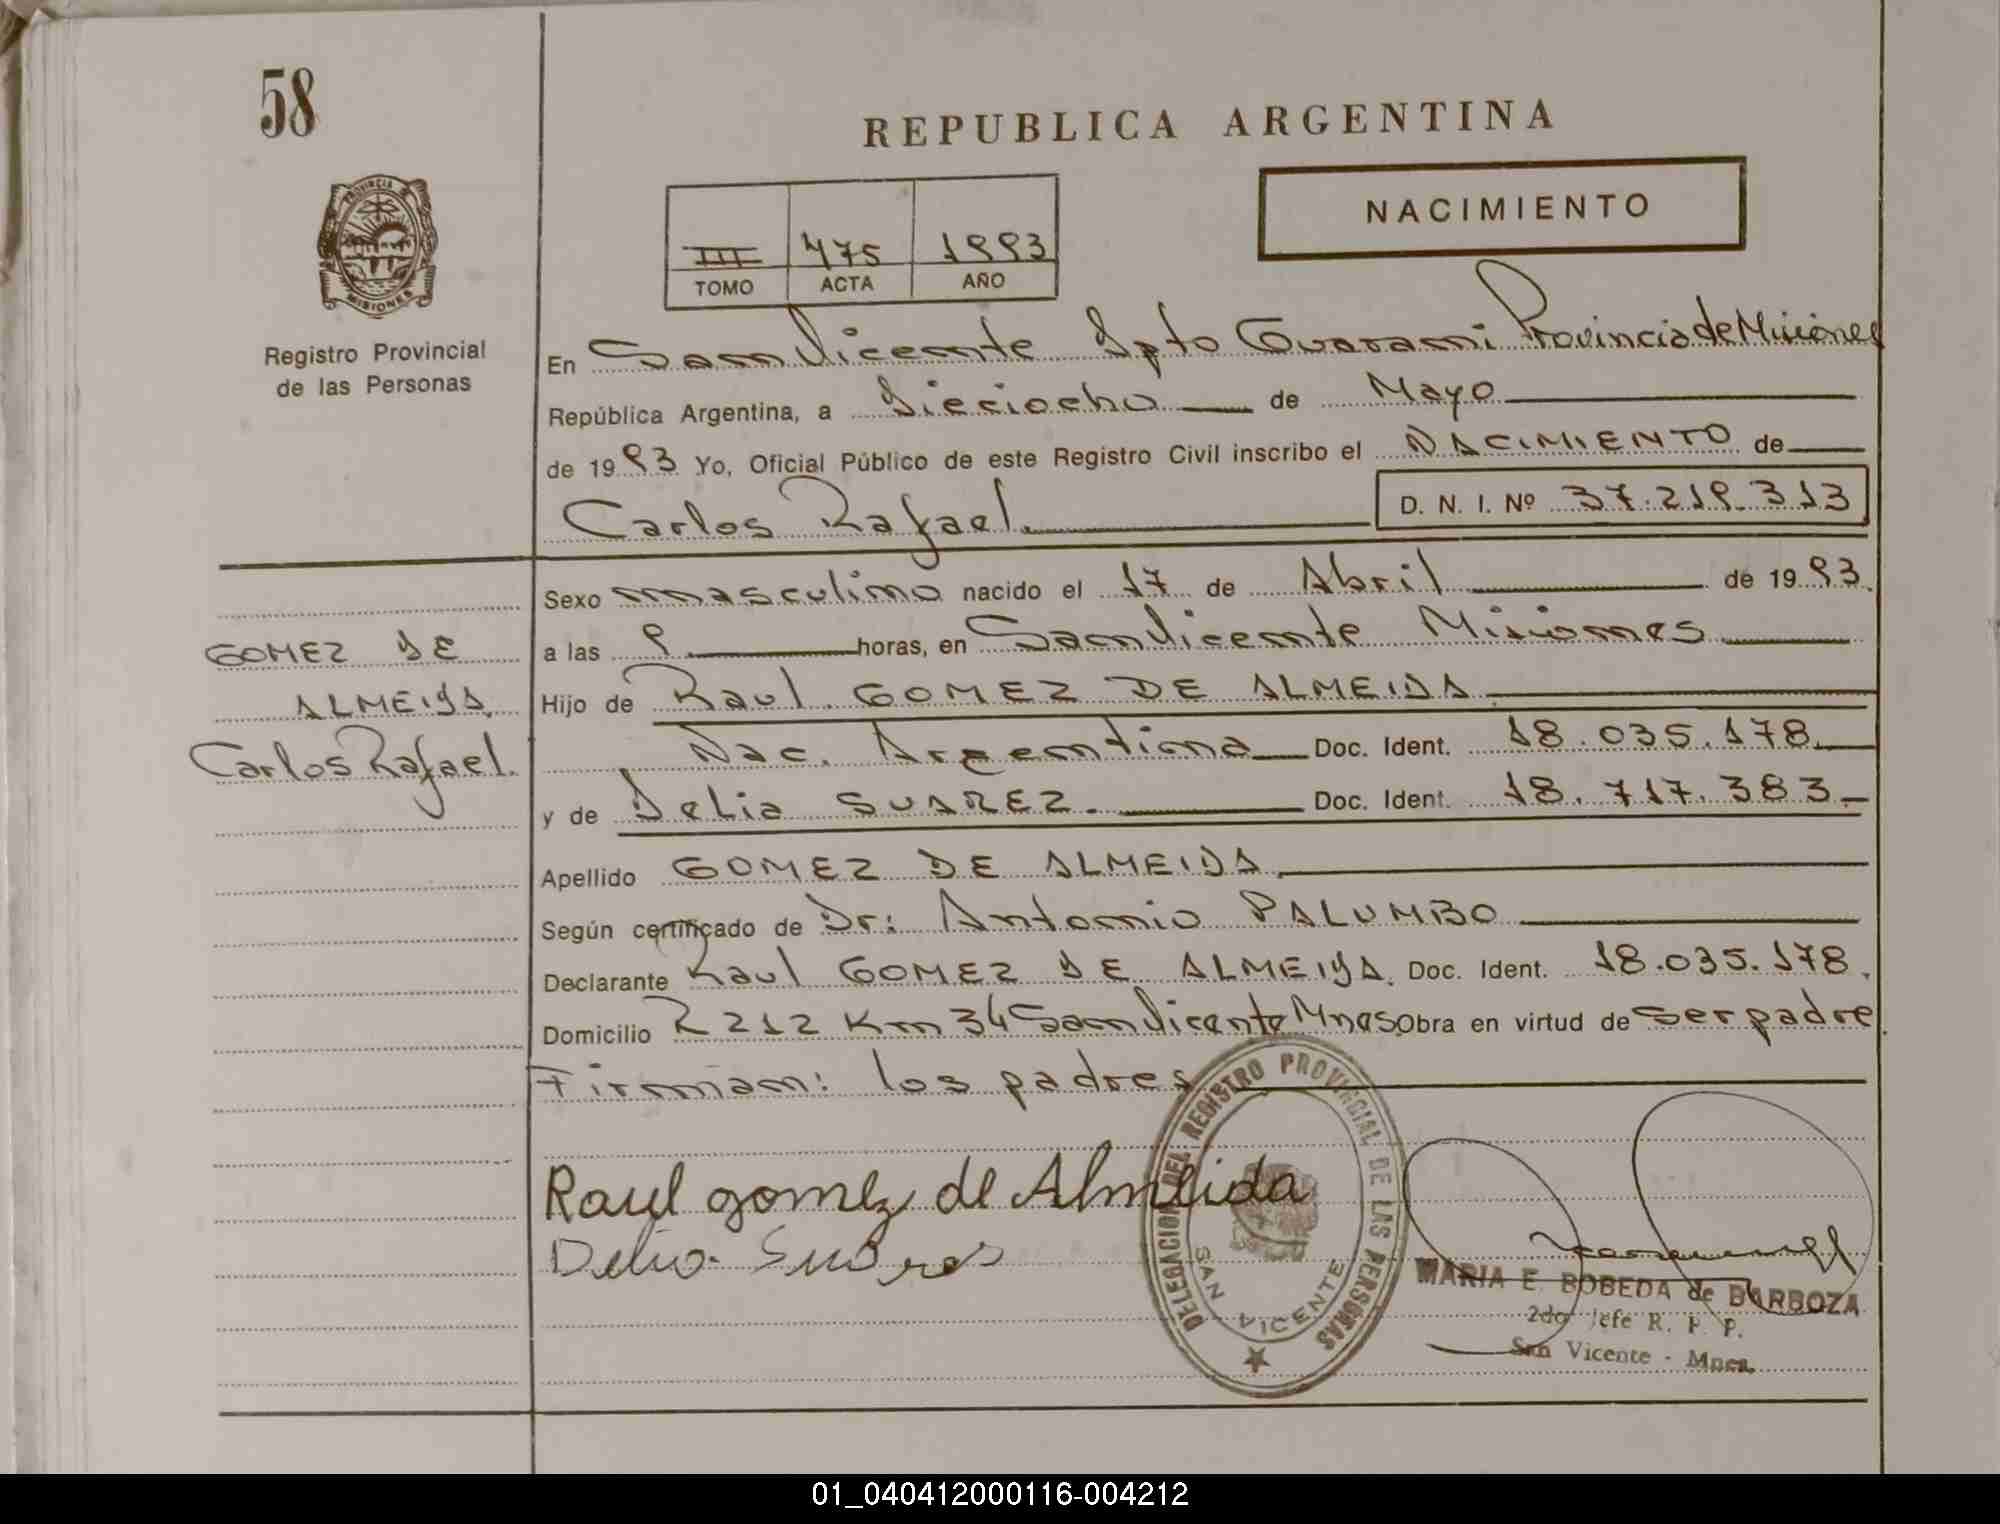 58
REPUBLICA ARGENTINA
PROVINCIA DE
MISIONES
Registro Provincial
de las Personas
NACIMIENTO
III 475 1993
TOMO ACTA AÑO
En San Vicente Dpto Guarani Provincia de Misiones
República Argentina, a Dieciocho de Mayo
de 1993 Yo, Oficial Público de este Registro Civil inscribo el NACIMIENTO de
Carlos Rafael. D. N. I. Nº 37.219.313
Sexo masculino nacido el 17 de Abril de 1993
a las 9 horas, en San Vicente Misiones
Hijo de Raul GOMEZ DE ALMEIDA
Nac. Argentina Doc. Ident. 18.035.178.
y de Delia SUAREZ. Doc. Ident. 18.717.383
Apellido GOMEZ DE ALMEIDA
Según certificado de Dr: Antonio PALUMBO
Declarante Raul GOMEZ DE ALMEIDA. Doc. Ident. 18.035.178.
Domicilio R 212 Km 34 San Vicente Mnes Obra en virtud de ser padre
Firman: los padres
GOMEZ DE
ALMEIDA
Carlos Rafael.
Raul gomez de Almeida
Delia Suares
DELEGACION DEL REGISTRO PROVINCIAL DE LAS PERSONAS
SAN VICENTE
MARIA E. BOBEDA de BARBOZA
2do Jefe R. P. P.
San Vicente - Mnes.
01_040412000116-004212